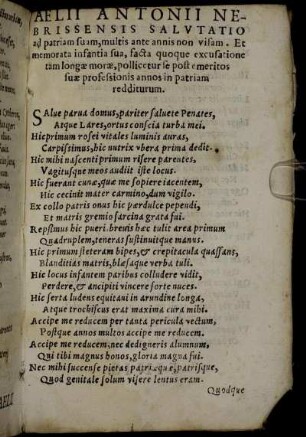 AELII ANTONII NE-
BRISSENSIS SALVTATIO
ad patriam suam, multis ante annis non visam. Et
memorata infantia sua, facta quoque excusatione
tàm longæ moræ, pollicetur se post emeritos
suæ professionis annos in patriam
redditurum.
SAlue parua domus, pariter saluete Penates,
Atque Lares, ortus conscia turba mei.
Hic primùm rosei vitales luminis auras,
Carpsimus, hic nutrix vbera prima dedit.
Hic mihi nascenti primum risere parentes,
Vagitusque meos audiit iste locus.
Hic fuerant cunæ, quæ me sopiere iacentem,
Hic cecinit mater carmina, dum vigilo.
Ex collo patris onus hic pærdulce pependi,
Et matris gremio sarcina grata fui.
Repsimus hic pueri. breuis hæc tulit area primum
Quadruplem, teneras sustinuitque manus.
Hic primum steteram bipes, & crepitacula quassans,
Blanditias matris, blæsaque verba tuli.
Hic locus infantem paribus colludere vidit,
Perdere, & ancipiti vincere sorte nuces.
Hic serta ludens equitaui in arundine longa,
Atque trochiscus erat maxima cura mihi.
Accipe me reducem per tanta pericula vectum,
Postque annos multos accipe me reducem.
Accipe me reducem, nec dedigneris alumnum,
Qui tibi magnus honos, gloria magna fui.
Nec mihi succense pietas patriæque, patrisque,
Quod genitale solum visere lentus eram.
Quodque